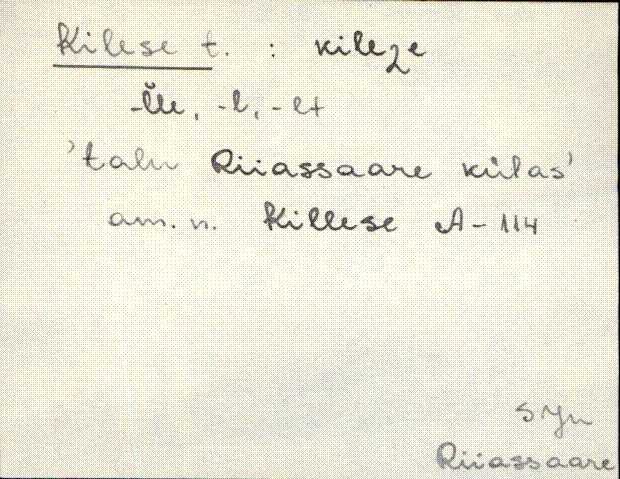 Kilese t. : kileʒe
-l̆le, -l, -lt
'talu Riiassaare külas'
am. n. Killese A-114
SJn
Riiassaare